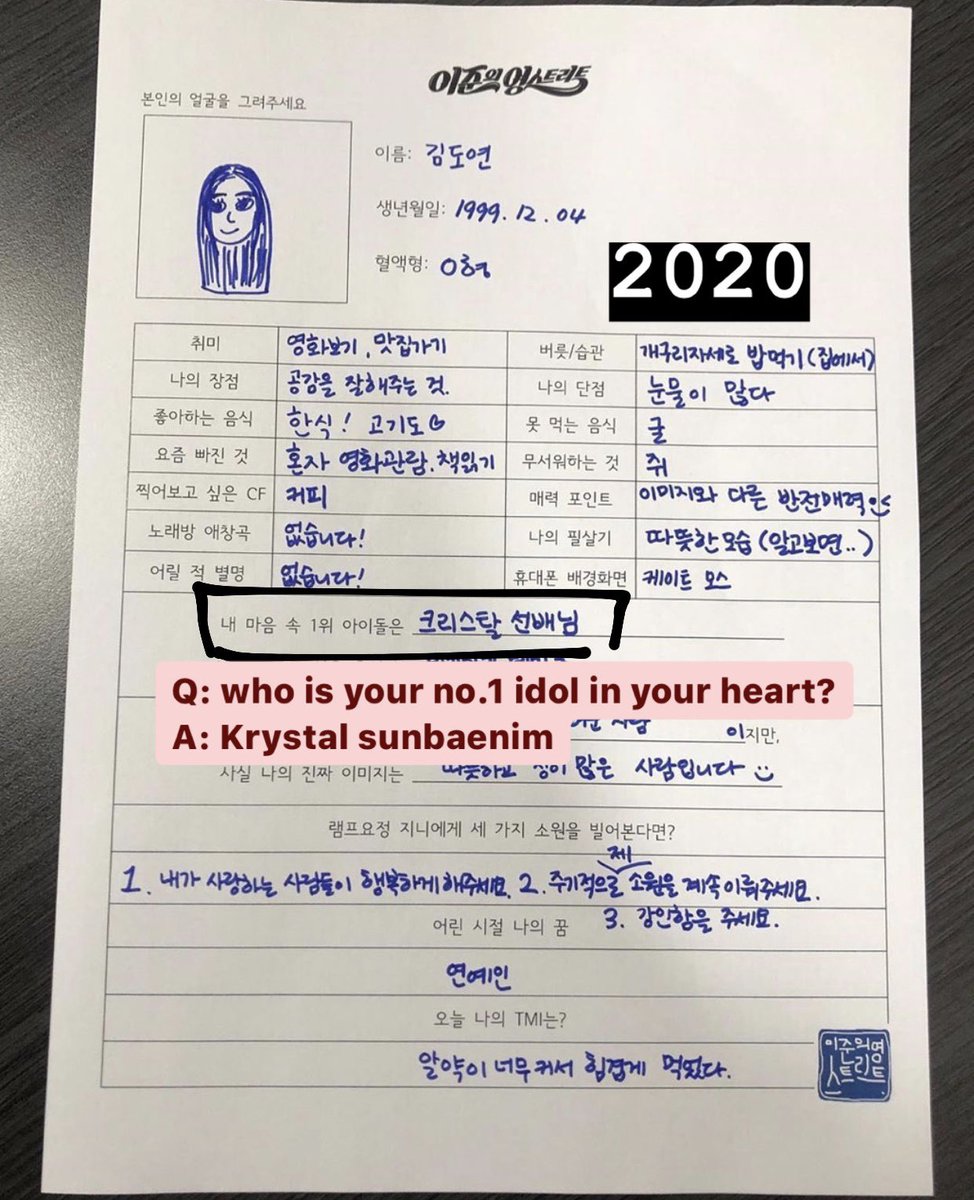 이준의 영스트리트
본인의 얼굴을 그려주세요
이름: 김도연
생년월일: 1999. 12. 04
혈액형: O형
2020
취미 영화보기, 맛집가기 버릇/습관 개구리자세로 밥먹기(집에서)
나의 장점 공감을 잘해주는 것. 나의 단점 눈물이 많다
좋아하는 음식 한식! 고기도♡ 못 먹는 음식 굴
요즘 빠진 것 혼자 영화관람, 책읽기 무서워하는 것 쥐
찍어보고 싶은 CF 커피 매력 포인트 이미지와 다른 반전매력
노래방 애창곡 없습니다! 나의 필살기 따뜻한 모습(알고보면..)
어릴 적 별명 없습니다! 휴대폰 배경화면 케이트 모스
내 마음 속 1위 아이돌은 크리스탈 선배님
Q: who is your no.1 idol in your heart?
A: Krystal sunbaenim
사람 이지만,
사실 나의 진짜 이미지는 따뜻하고 정이 많은 사람입니다
램프요정 지니에게 세 가지 소원을 빌어본다면?
1. 내가 사랑하는 사람들이 행복하게 해주세요. 2. 주기적으로 제 소원을 계속 이뤄주세요.
3. 강인함을 주세요.
어린 시절 나의 꿈
연예인
오늘 나의 TMI는?
알약이 너무 커서 힘겹게 먹었다.
이준의영
스트리트